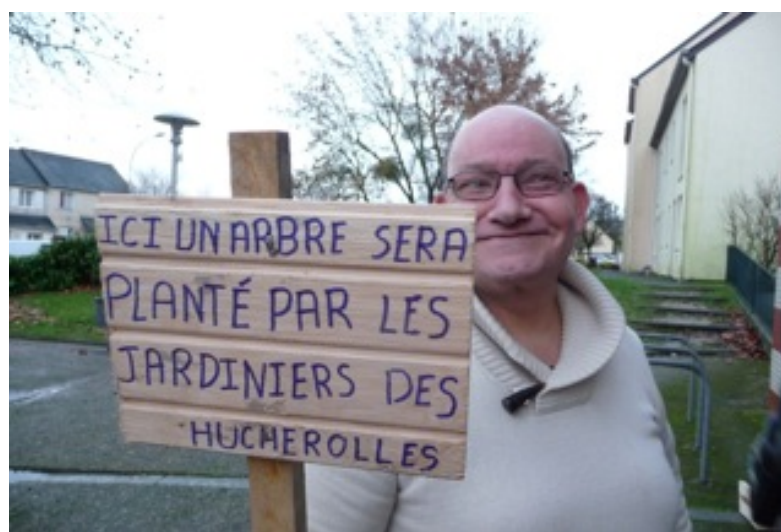 ICI UN ARBRE SERA
PLANTÉ PAR LES
JARDINIERS DES
HUCHEROLLES